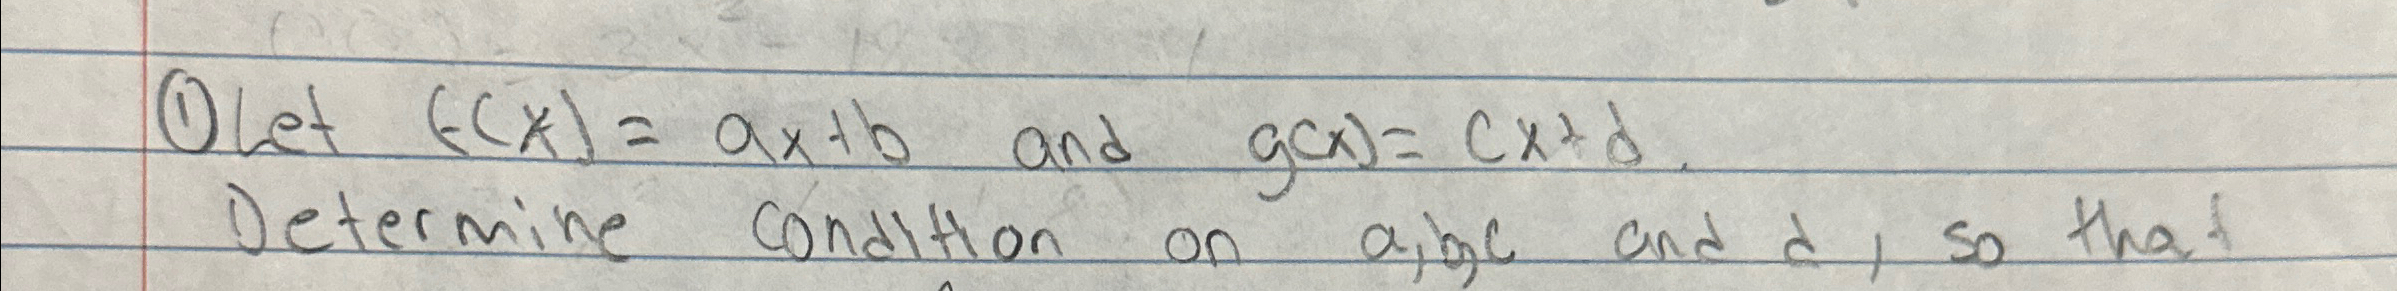 ① Let f(x) = ax+b and g(x) = cx+d.
Determine condition on a, b, c and d, so that